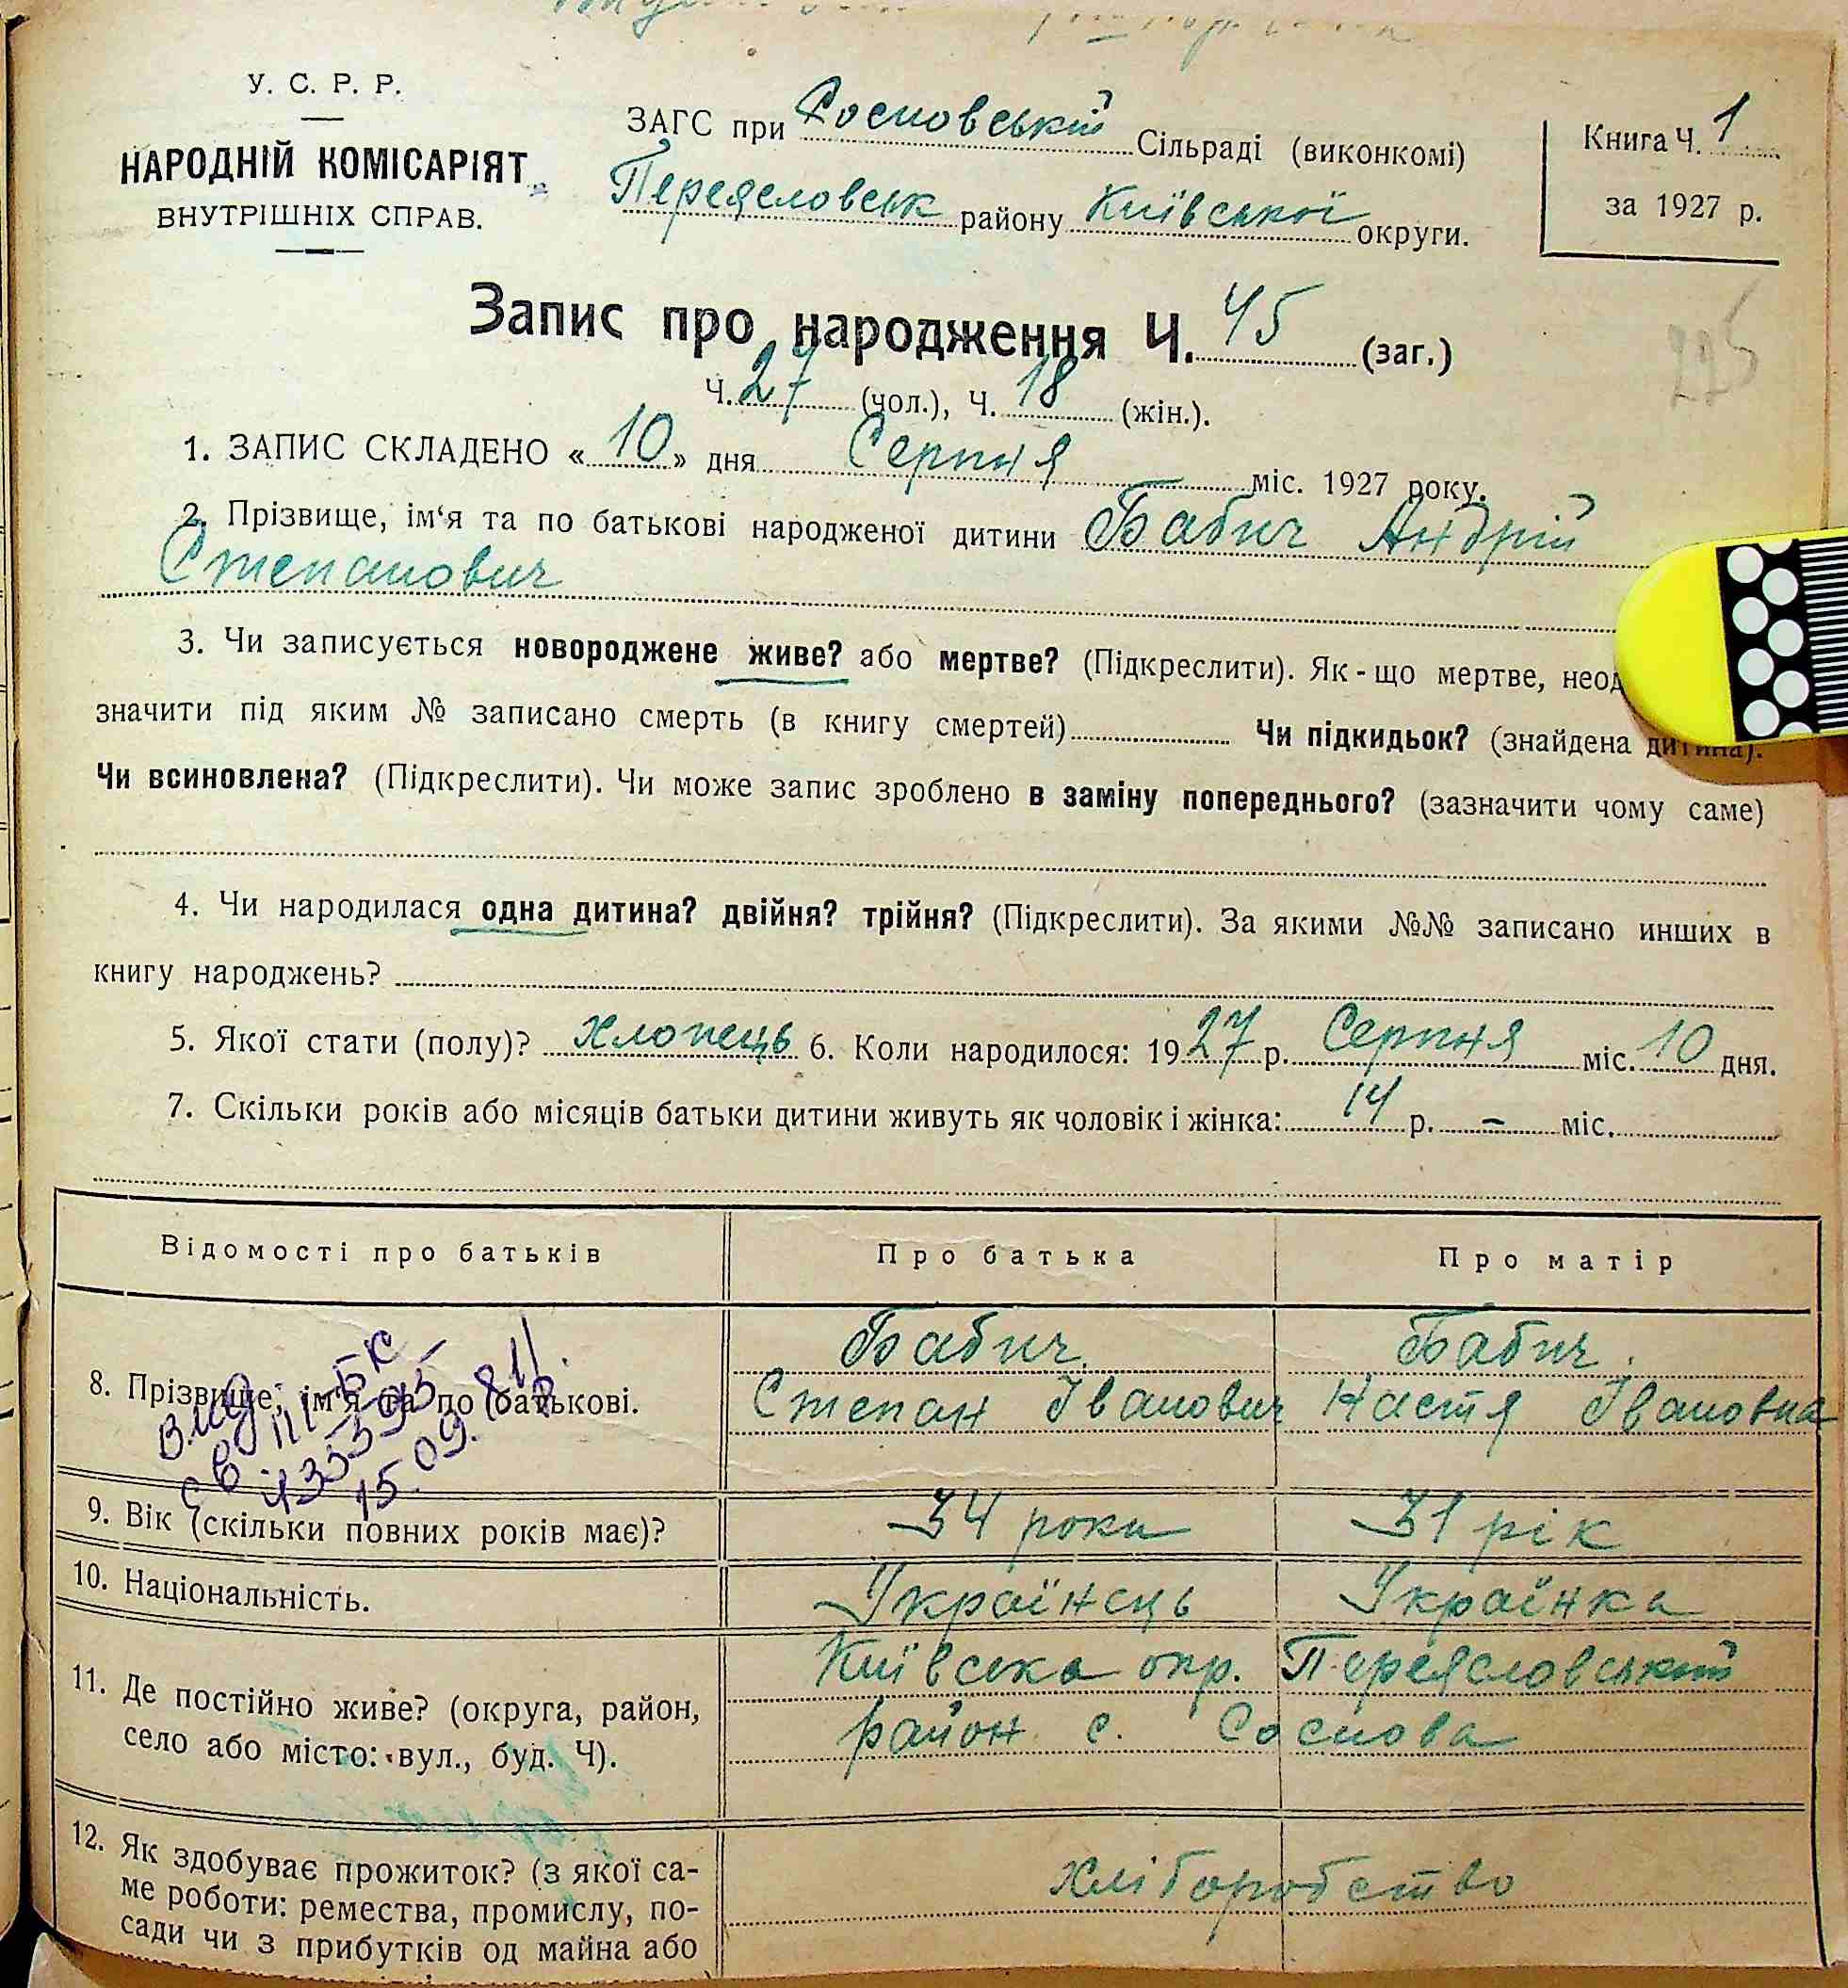 У. С. Р. Р.
НАРОДНІЙ КОМІСАРІЯТ
ВНУТРІШНІХ СПРАВ.
ЗАГС при Сосновській Сільраді (виконкомі)
Переясловськ району Київської округи.
Книга Ч. 1
за 1927 р.
Запис про народження Ч. 45 (заг.)
225
Ч. 27 (чол.), Ч. 18 (жін.).
1. ЗАПИС СКЛАДЕНО «10» дня Серпня міс. 1927 року.
2. Прізвище, ім‘я та по батькові народженої дитини Бабич Андрій
Степанович
3. Чи записується новороджене живе? або мертве? (Підкреслити). Як-що мертве,
значити під яким № записано смерть (в книгу смертей) Чи підкидьок? (знайдена дитина).
Чи всиновлена? (Підкреслити). Чи може запис зроблено в заміну попереднього? (зазначити чому саме)
4. Чи народилася одна дитина? двійня? трійня? (Підкреслити). За якими №№ записано инших в
книгу народжень?
5. Якої стати (полу)? Хлопець 6. Коли народилося: 1927 р. Серпня міс. 10 дня.
7. Скільки років або місяців батьки дитини живуть як чоловік і жінка: 14 р. – міс.
Відомості про батьків Про батька Про матір
8. Прізвище, ім'я та по батькові. Бабич Бабич
Степан Іванович Настя Івановна
15.09.81
9. Вік (скільки повних років має)? 34 роки 31 рік
10. Національність. Українець Українка
11. Де постійно живе? (округа, район, Київська окр. Переясловський
село або місто: вул., буд. Ч). район с. Соснова
12. Як здобуває прожиток? (з якої са-
ме роботи: ремества, промислу, по- хліборобство
сади чи з прибутків од майна або